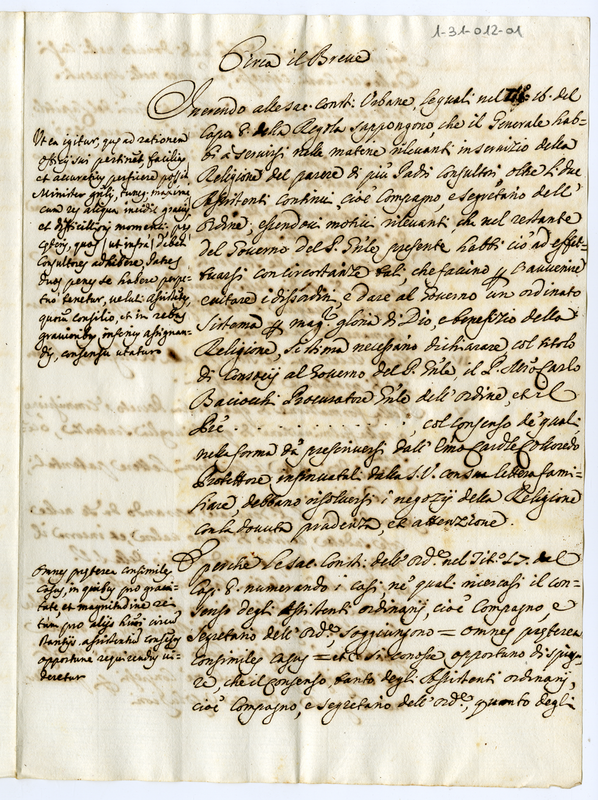 1-31-012-01
Circa il Breve
Inerendo alle sac. Const: Urbane, le quali nel Tit: 16. del
Cap. 8. della Regola suppongono, che il Generale hab-
bi à servirsi nelle materie rilevanti in servizio della
Religione del parere di più Padri Consultori oltre li due
Assistenti continui cioè Compagno, e Segretario dell'
Ordine, essendovi motivi rilevanti che nel restante
del Governo del P. Gñle presente habbi ciò ad effet-
tuarsi con circostanze tali, che faccino p l'avvenire
evitare i disordini, e dare al Governo un ordinato
Sistema p magg. gloria di Dio, e benefizio della
Religione, si stima necessario dichiarare col titolo
di al Governo del P. Gñle, il P. Mrõ Carlo
Baciocchi Procuratore Gñle dell'Ordine, et il
Prẽ . . . . . . . . . . . . . , col consenso de quali
nella forma dà prescriversi dall' Emo Cardle Colloredo
Protettore dalla S. V. con sua lettera fami-
liare, debbano risolversi i negozij della Religione
con la dovuta prudenza, et attenzione.
E perche le sac. Consti: dell'Ordẽ nel Tit: 17. del
Cap. 8. numerando i casi, ne' quali ricercasi il con-
senso degli Assistenti ordinarij, cioè Compagno, e
Segretario dell' Ordẽ, soggiungono = omnes pręterea
consimiles casus = etc. si conosce opportuno di spieg-
re, che il consenso tanto degli Assistenti ordinarij,
cioè Compagno, e Segretario dell' Ordẽ, quanto degli
Ut ea igitur, quę ad rationem
officij sui pertinet facilius
et accuratius perficere possit
Minister Gñlis, tunc maxime
cum res aliqua inciderit gravis
et difficilioris momenti pręter
cęteros, quos (ut infra) debet
Consultores adhibere, Patres
duos penes se habere perpe-
tuo tenetur, velut assistentes,
quorum consilio, et in rebus
gravioribus inferius assignan-
dis, consensu utatur
Omnes pręterea consimiles
casus, in quibus pro gravi-
tate et magnitudine re-
rum pro alijs huiusmodi circum
stantijs assistentium consensus
opportune requirendus vi-
deretur